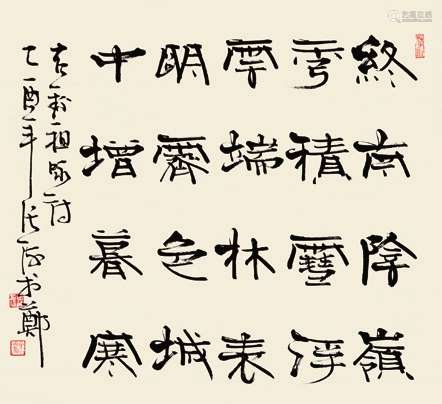 終南陰嶺
秀積雪浮
雲端林表
明霽色城
中增暮寒
祖詠詩
乙酉年
鄭